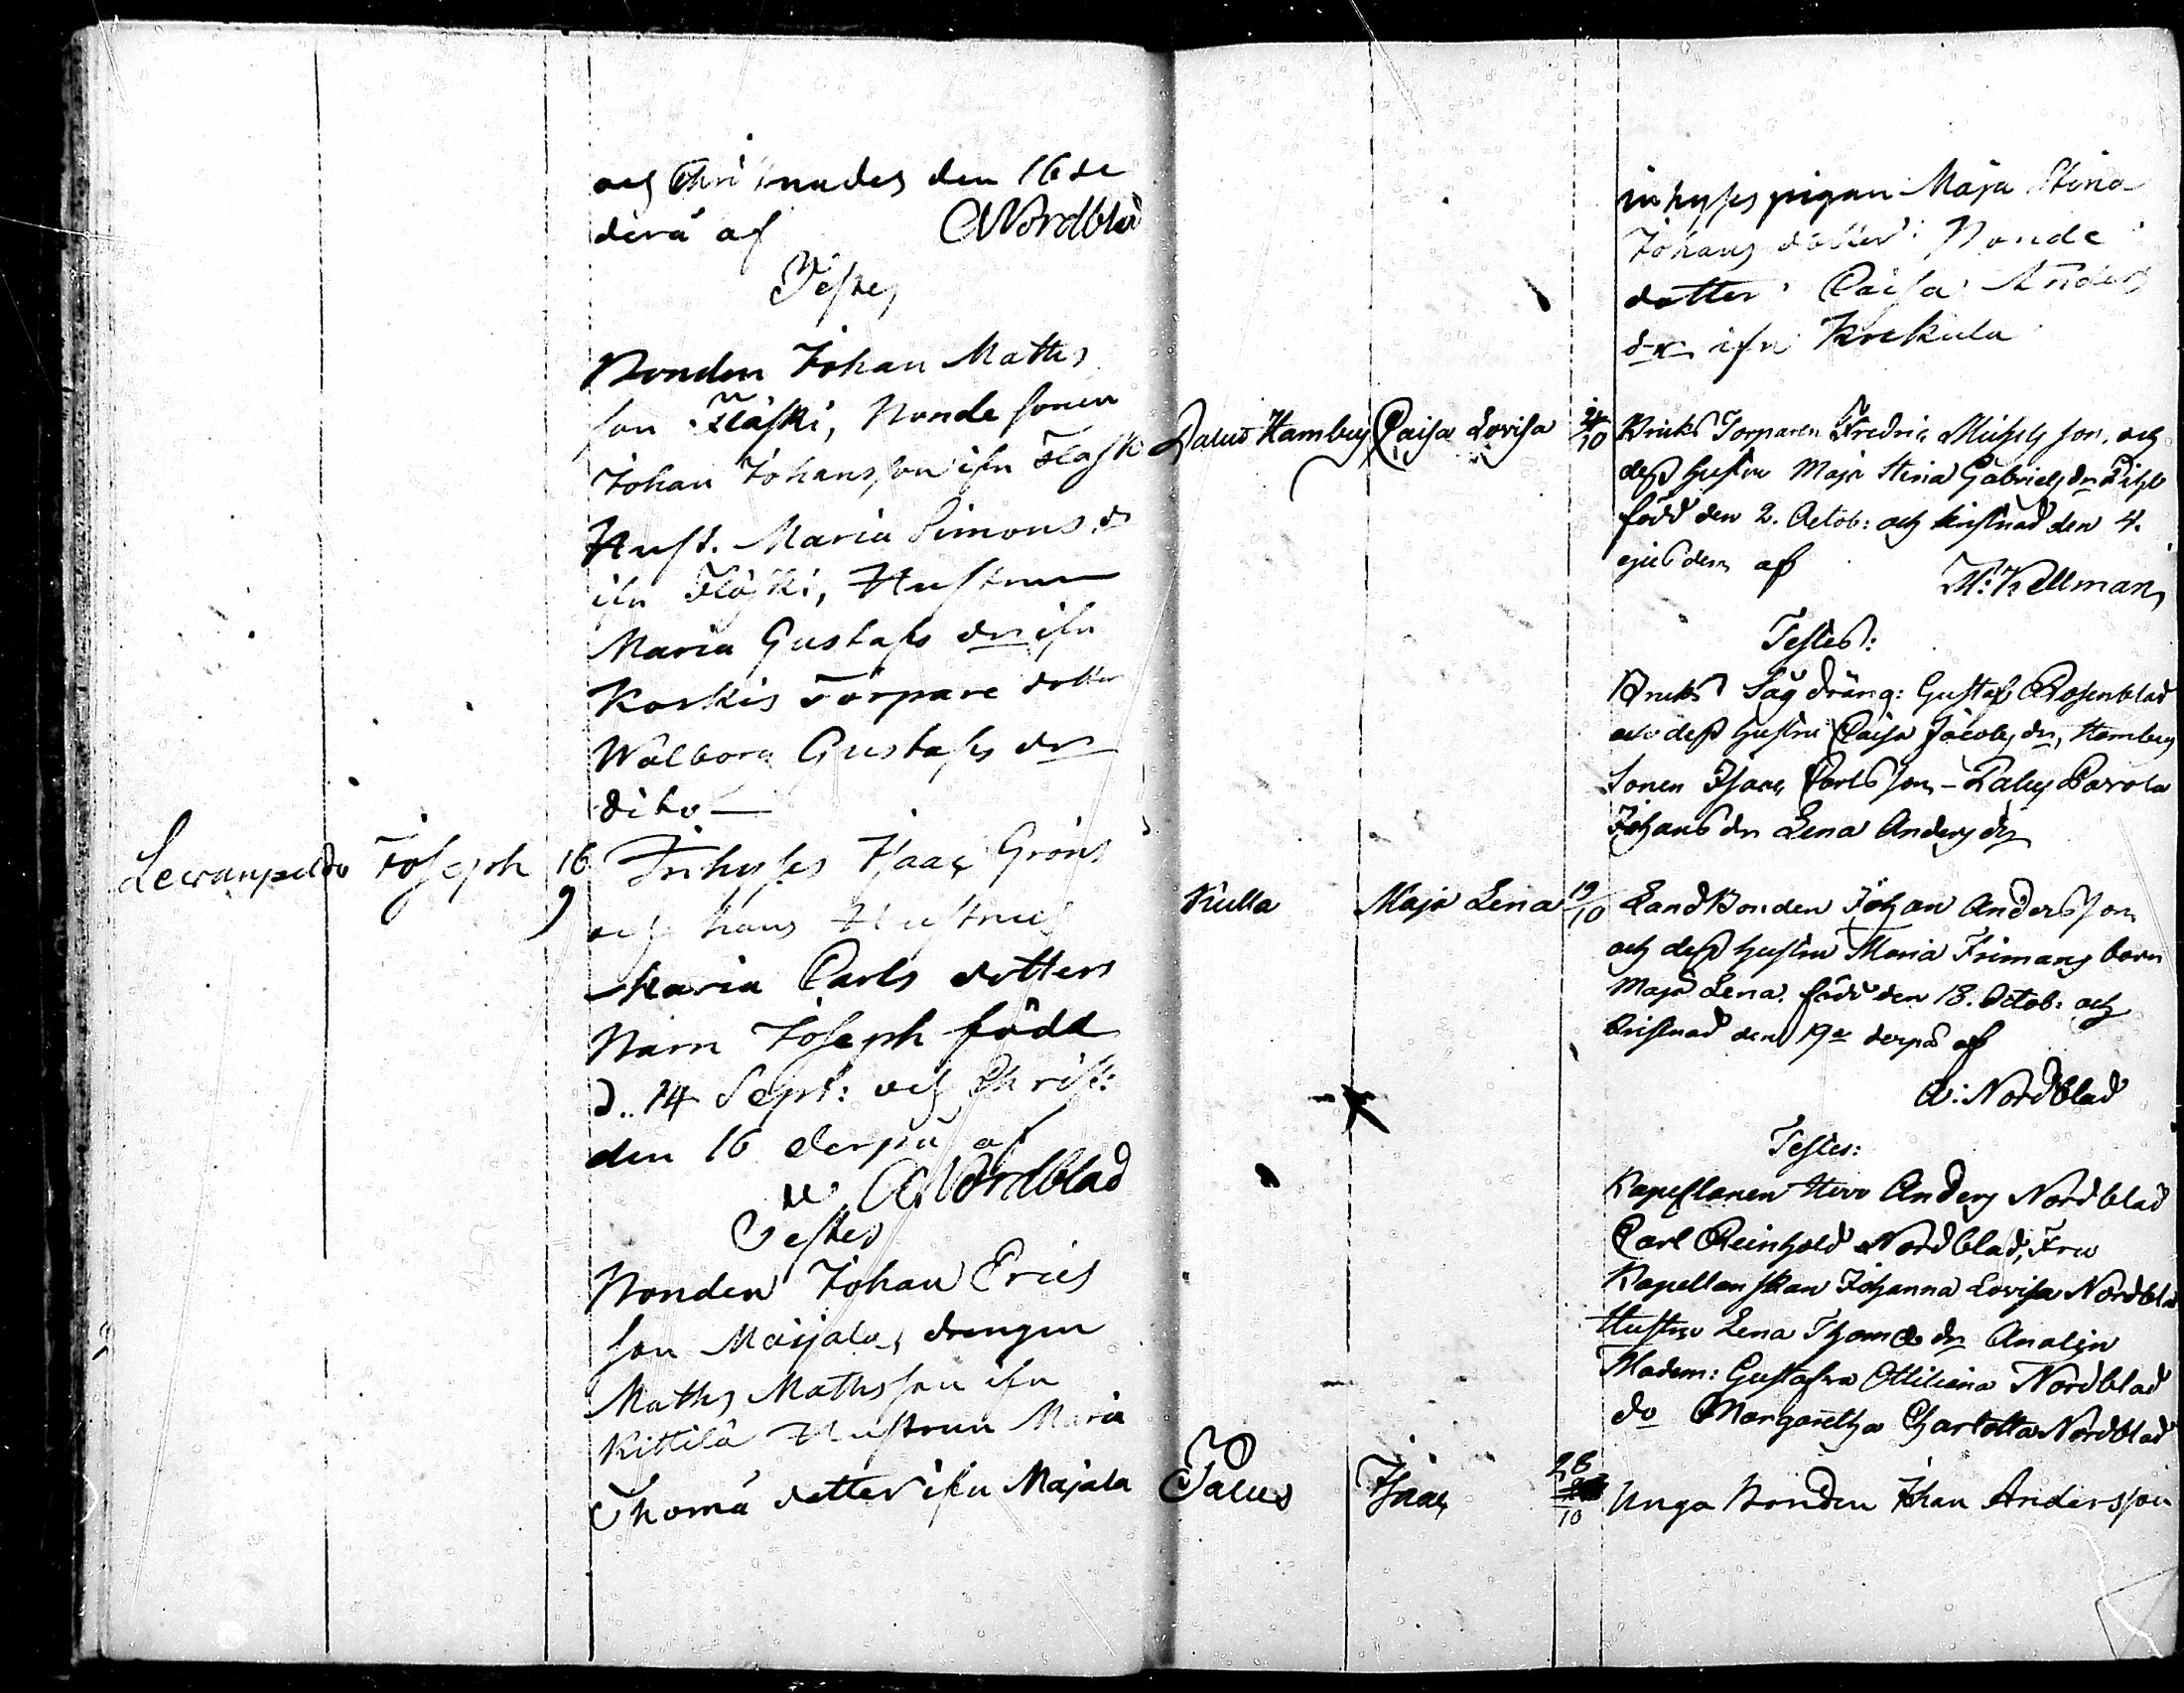 och Christnades den 16de
derå af A Nordblad
Testes
Bonden Johan Matts
son Flaski, Bonde sonen
Johan Johansson ifrn Flaski
Hust. Maria Simons dr
ifrn Flaski, Hustrun
Maria Gustafs dr ifrn
Korkis Torpare dotter
Walborg Gustafs dr
dito
Lewanpeldo Joseph 16/9 Inhyses Isaac Gröns
och hans Hustrus
Maria Carls dotters
Barn Joseph född
d. 14 Sept: och Christ:
den 16 derpå af
A Nordblad
Testes
Bonden Johan Erics
son Maijala, drengen
Matths Mathsson ifrn
Kittilä Hustrun Maria
Thomä dotter ifrn Majala
inhyses pigan Maja Stina
Johans dotter Bonde
dotter Caisa Anders
dr ifrn Krekula
Palus Hamberg Caisa Lovisa 4/10 Bruks Torparen Fredric Michels son, och
dess hustru Maja Stina Gabriels dr
född den 2. Octob: och kristnad den 4.
ejusdem af M: Kellman
Testes:
Bruks Såg dräng: Gustaf Rosenblad
och dess hustru Caisa Jacobs dr, Hamberg
Sonen Isaac Carlsson - Palus Carola
Johans dr Lena Anders dr
Kulla Maja Lena 19/10 Landbonden Johan Andersson
och dess hustru Maria Frimans barn
Maja Lena, född den 18. Octob: och
kristnad den 19de derpå af
A: Nordblad
Testes:
Kapellanen Herr Anders Nordblad
Carl Reinhold Nordblad, Fru
Kapellanskan Johanna Lovisa Nordblad
Hustru Lena Thomæ dr Analin
Madem: Gustafva Ottiliana Nordblad
do Margaretha Charlotta Nordblad
Palus Isaac 28/10 Unga Bonden Johan Andersson